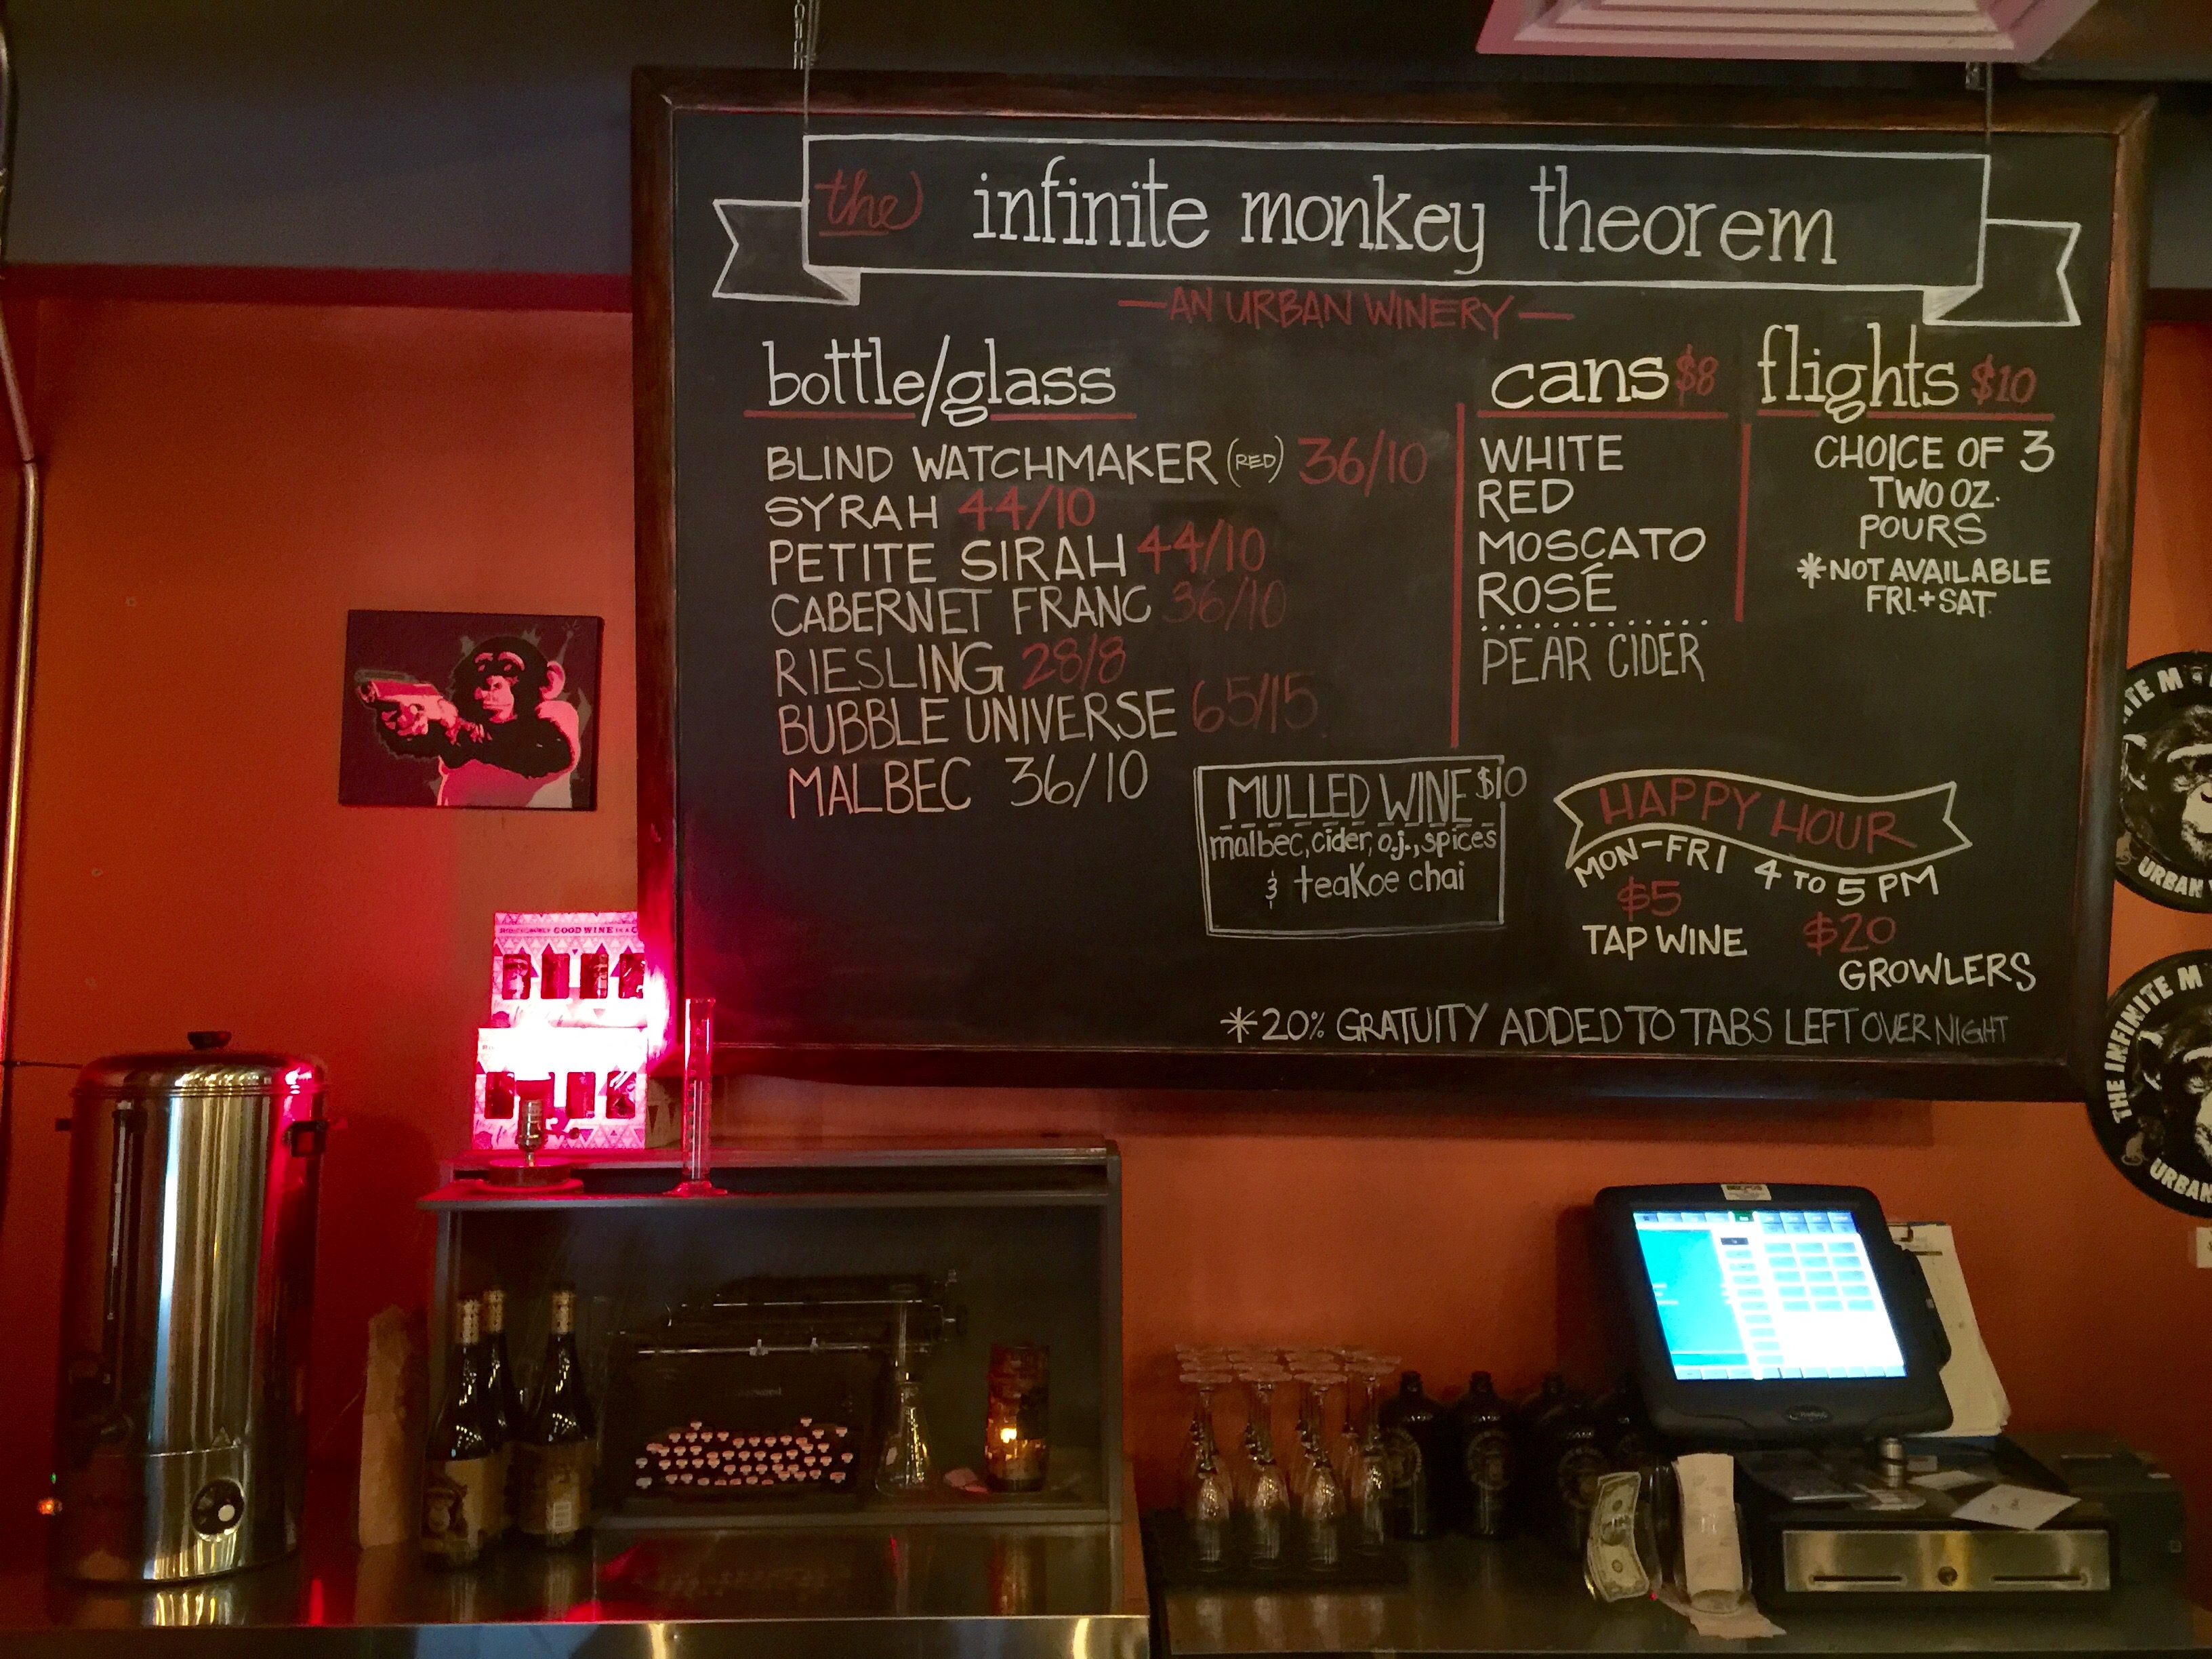 the infinite monkey theorem
—AN URBAN WINERY—
bottle/glass
BLIND WATCHMAKER (RED) 36/10
SYRAH 44/10
PETITE SIRAH 44/10
CABERNET FRANC 36/10
RIESLING 28/8
BUBBLE UNIVERSE 65/15
MALBEC 36/10
cans $8
WHITE
RED
MOSCATO
ROSÉ
PEAR CIDER
flights $10
CHOICE OF 3
TWO OZ.
POURS
*NOT AVAILABLE
FRI.+SAT.
MULLED WINE $10
malbec, cider, o.j., spices
& teaKoe chai
HAPPY HOUR
MON-FRI 4 TO 5 PM
$5
TAP WINE
$20
GROWLERS
*20% GRATUITY ADDED TO TABS LEFT OVERNIGHT
GOOD WINE IN A C
ITE M
URBAN
THE INFINITE M
URBAN